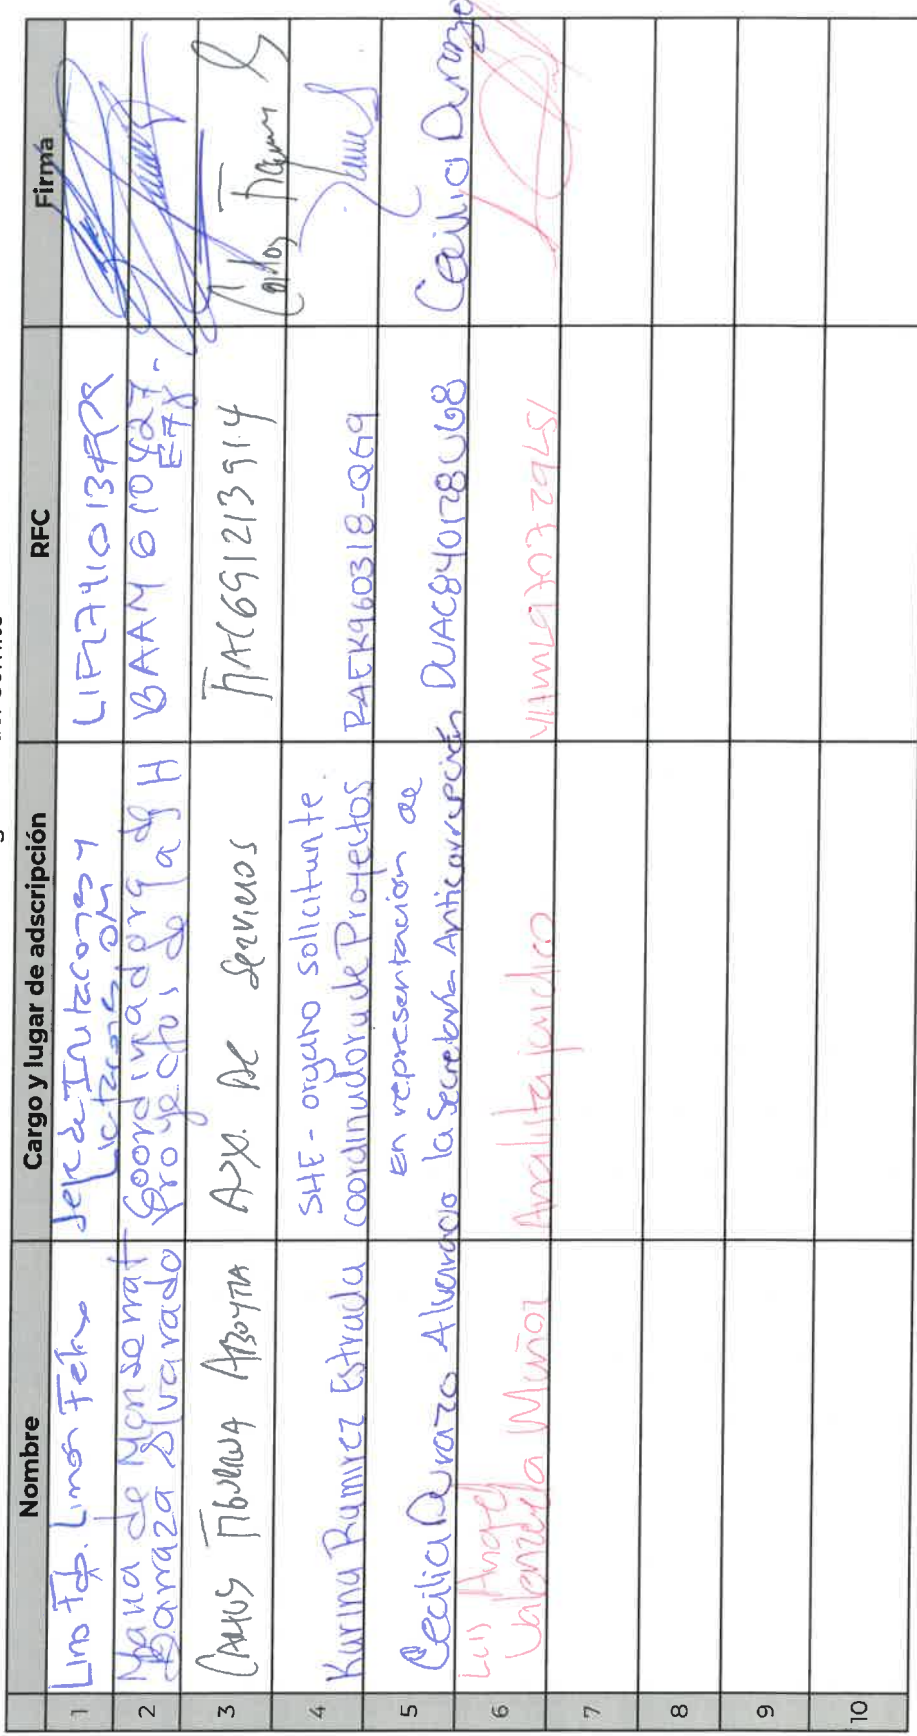 Nombre
Cargo y lugar de adscripción
RFC
Firma
1
Lino Fdo. Limón Félix
Jefe de Invitaciones y
Licitaciones OM
2
María de Monserrat
Barraza Alvarado
Coordinadora de
Proyectos de la
BAAM 610427-
E78
3
Aux. de Servicios
4
Karina Ramirez Estrada
SHE - organo solicitante.
Coordinadora de Proyectos
RAEK960318-QG9
5
Cecilia Durazo Alvarado
En representación de
la Secretaría Anticorrupción
DUAC840128U68
Cecilia Durazo
6
Luis Angel
Valenzuela Muñoz
Analista jurídico
7
8
9
10